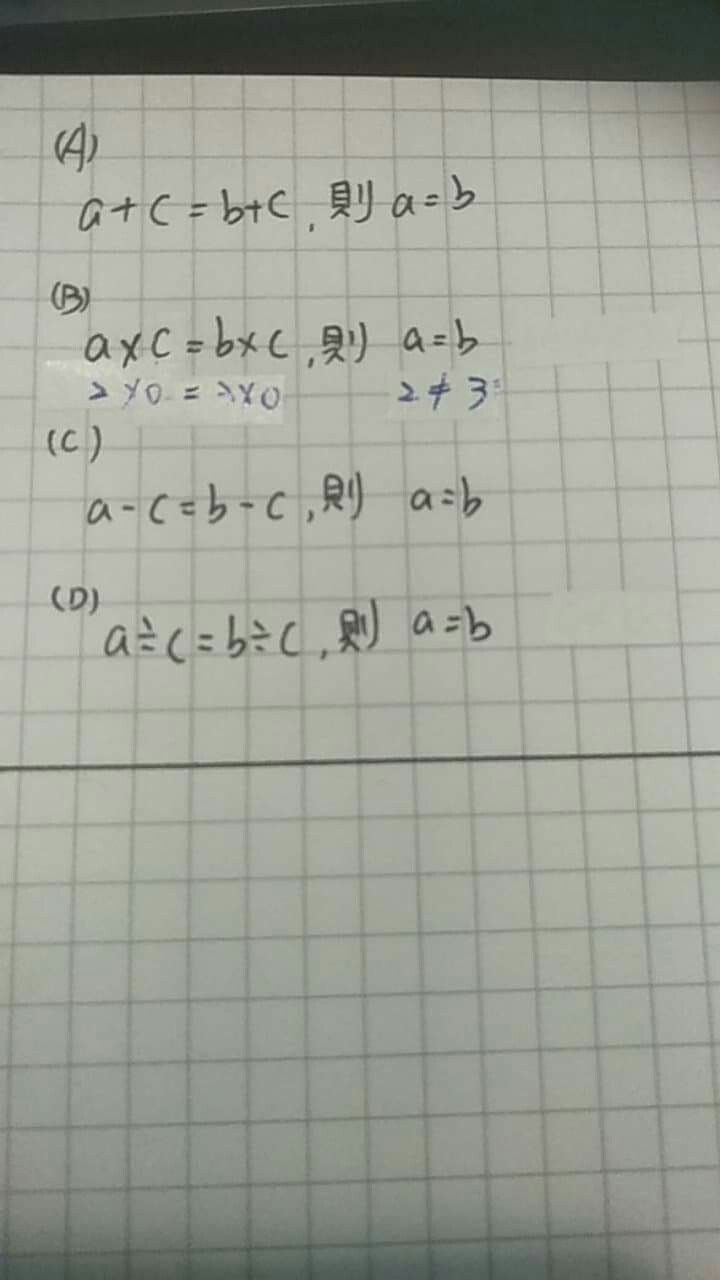 (A)
a+c=b+c,則 a=b
(B)
a×c=b×c,則 a=b
2×0=2×0 2≠3
(C)
a-c=b-c,則 a=b
(D)
a÷c=b÷c,則 a=b